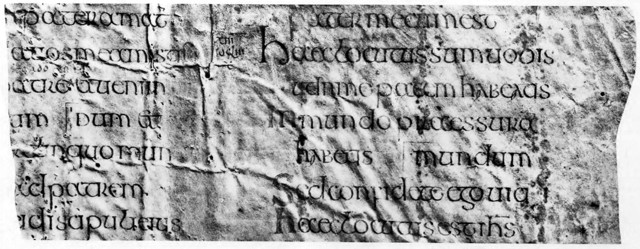 pater amat
uos me amastis
patre et ueni in
um dum et
linquo mun
ad patrem
discipuli eius
pater mecum est
haec locutus sum uobis
ut in me pacem habeatis
in mundo praessura
habetis mundum
sed confidate ego uici
haec locutus est ihs